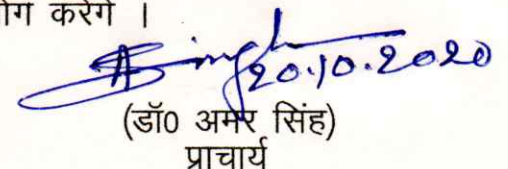 करेंगे ।
Singh
20.10.2020
(डॉ0 अमर सिंह)
प्राचार्य